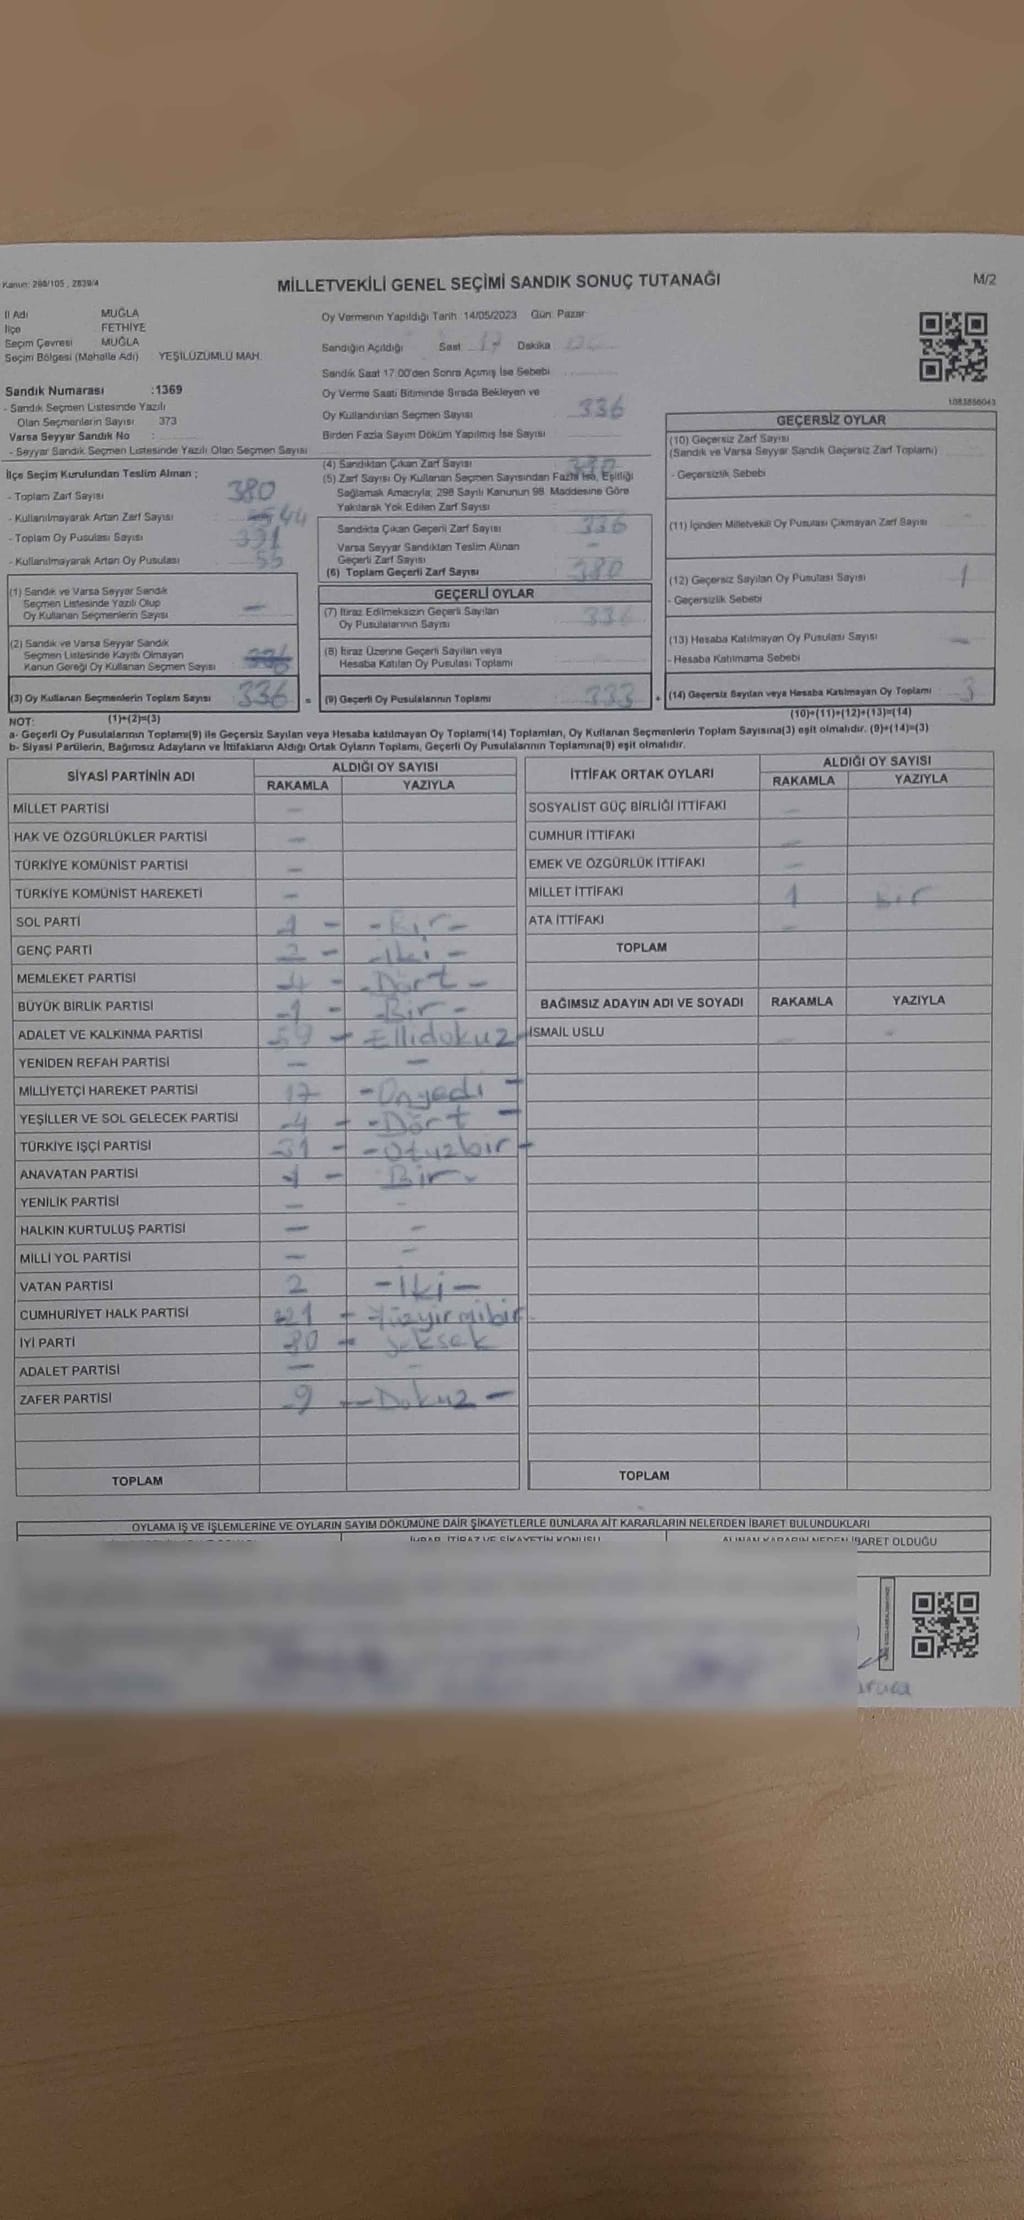 Kanun: 298/105 , 2839/4
MİLLETVEKİLİ GENEL SEÇİMİ SANDIK SONUÇ TUTANAĞI
M/2
İl Adı MUĞLA
İlçe FETHİYE
Seçim Çevresi MUĞLA
Seçim Bölgesi (Mahalle Adı) YEŞİLÜZÜMLÜ MAH.
Sandık Numarası :1369
- Sandık Seçmen Listesinde Yazılı
Olan Seçmenlerin Sayısı 373
Varsa Seyyar Sandık No :
- Seyyar Sandık Listesinde Yazılı Olan Seçmen Sayısı
İlçe Seçim Kurulundan Teslim Alınan ;
- Toplam Zarf Sayısı 380
- Kullanılmayarak Artan Zarf Sayısı 44
- Toplam Oy Pusulası Sayısı 391
- Kullanılmayarak Artan Oy Pusulası 55
(1) Sandık ve Varsa Seyyar Sandık
Seçmen Listesinde Yazılı Olup
Oy Kullanan Seçmenlerin Sayısı —
(2) Sandık ve Varsa Seyyar Sandık
Seçmen Listesinde Kayıtlı Olmayan
Kanun Gereği Oy Kullanan Seçmen Sayısı
(3) Oy Kullanan Seçmenlerin Toplam Sayısı 336 =
(1)+(2)=(3)
Oy Vermenin Yapıldığı Tarih :14/05/2023 Gün: Pazar
Sandığın Açıldığı Saat 17 Dakika
Sandık Saat 17.00'den Sonra Açımış İse Sebebi
Oy Verme Saati Bitiminde Sırada Bekleyen ve
Oy Kullandırılan Seçmen Sayısı 336
Birden Fazla Sayım Döküm Yapılmış İse Sayısı
(4) Sandıktan Çıkan Zarf Sayısı 380
(5) Zarf Sayısı Oy Kullanan Seçmen Sayısından Fazla İse, Eşitliği
Sağlamak Amacıyla; 298 Sayılı Kanunun 98. Maddesine Göre
Yakılarak Yok Edilen Zarf Sayısı
Sandıkta Çıkan Geçerli Zarf Sayısı 336
Varsa Seyyar Sandıktan Teslim Alınan
Geçerli Zarf Sayısı —
(6) Toplam Geçerli Zarf Sayısı 380
GEÇERLİ OYLAR
(7) İtiraz Edilmeksizin Geçerli Sayılan
Oy Pusulalarının Sayısı 336
(8) İtiraz Üzerine Geçerli Sayılan veya
Hesaba Katılan Oy Pusulası Toplamı
(9) Geçerli Oy Pusulalarının Toplamı 333 +
1083856043
GEÇERSİZ OYLAR
(10) Geçersiz Zarf Sayısı
(Sandık ve Varsa Seyyar Sandık Geçersiz Zarf Toplamı) -
- Geçersizlik Sebebi
(11) İçinden Milletvekili Oy Pusulası Çıkmayan Zarf Sayısı -
(12) Geçersiz Sayılan Oy Pusulası Sayısı 1
- Geçersizlik Sebebi
(13) Hesaba Katılmayan Oy Pusulası Sayısı —
- Hesaba Katılmama Sebebi
(14) Geçersiz Sayılan veya Hesaba Katılmayan Oy Toplamı 3
(10)+(11)+(12)+(13)=(14)
NOT:
a- Geçerli Oy Pusulalarının Toplamı(9) ile Geçersiz Sayılan veya Hesaba katılmayan Oy Toplamı(14) Toplamları, Oy Kullanan Seçmenlerin Toplam Sayısına(3) eşit olmalıdır. (9)+(14)=(3)
b- Siyasi Partilerin, Bağımsız Adayların ve İttifakların Aldığı Ortak Oyların Toplamı, Geçerli Oy Pusulalarının Toplamına(9) eşit olmalıdır.
SİYASİ PARTİNİN ADI ALDIĞI OY SAYISI
RAKAMLA YAZIYLA
MİLLET PARTİSİ —
HAK VE ÖZGÜRLÜKLER PARTİSİ —
TÜRKİYE KOMÜNİST PARTİSİ —
TÜRKİYE KOMÜNİST HAREKETİ —
SOL PARTİ 1 - -Bir-
GENÇ PARTİ 2 - -İki-
MEMLEKET PARTİSİ 4 - -Dört-
BÜYÜK BİRLİK PARTİSİ 1 - -Bir-
ADALET VE KALKINMA PARTİSİ 59 - Ellidokuz-
YENİDEN REFAH PARTİSİ — —
MİLLİYETÇİ HAREKET PARTİSİ 17 -Onyedi-
YEŞİLLER VE SOL GELECEK PARTİSİ 4 - -Dört-
TÜRKİYE İŞÇİ PARTİSİ 31 - -Otuzbir-
ANAVATAN PARTİSİ 1 - Bir-
YENİLİK PARTİSİ — -
HALKIN KURTULUŞ PARTİSİ — -
MİLLİ YOL PARTİSİ — -
VATAN PARTİSİ 2 -İki-
CUMHURİYET HALK PARTİSİ 121 - Yüzyirmibir-
İYİ PARTİ 80 - seksek
ADALET PARTİSİ — -
ZAFER PARTİSİ 9 -Dokuz-
TOPLAM
İTTİFAK ORTAK OYLARI ALDIĞI OY SAYISI
RAKAMLA YAZIYLA
SOSYALİST GÜÇ BİRLİĞİ İTTİFAKI —
CUMHUR İTTİFAKI —
EMEK VE ÖZGÜRLÜK İTTİFAKI —
MİLLET İTTİFAKI 1 Bir
ATA İTTİFAKI —
TOPLAM
BAĞIMSIZ ADAYIN ADI VE SOYADI RAKAMLA YAZIYLA
İSMAİL USLU — -
TOPLAM
OYLAMA İŞ VE İŞLEMLERİNE VE OYLARIN SAYIM DÖKÜMÜNE DAİR ŞİKAYETLERLE BUNLARA AİT KARARLARIN NELERDEN İBARET BULUNDUKLARI
İHBAR, İTİRAZ VE ŞİKAYETİN KONUSU ALINAN KARARIN NEDEN İBARET OLDUĞU